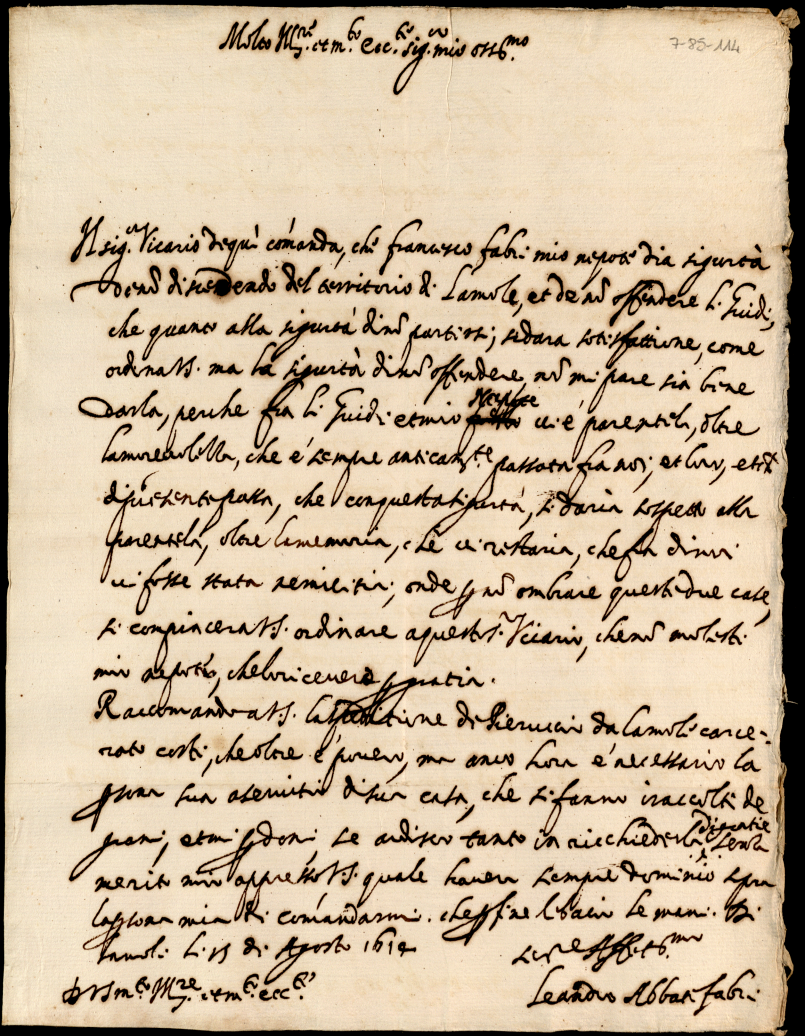 Molto Ill.re et m.to Ecc.te sig.r mio oss.mo
7-85-114
Il sig.r Vicario de quì comanda, che francesco fabri mio nepote dia sigurtà
de nō discendendo del territorio di Lamole, et de nō offendere li Guidi,
che quanto alla sigurtà di nō partirsi, si dara sotisfattione, come
ordina V.S. ma la sigurtà di nō offendere, nō mi pare sia bene
darla, perche fra li Guidi et mio Nepote vi è parentela, oltre
lamorevolezza, che è sempre anticam.te passata fra noi, et loro, et
di presente passa, che con questa sigurtà, si daria sospetto alla
parentela, oltre la memoria, che vi restaria, che fra di noi
vi fosse stata nemicitia; onde p nō ombrare queste due case,
si compiacerà V.S. ordinare a questo s.r Vicario, che nō molesti
mio nepote, che lo riceverò p gratia.
Raccomando a V.S. la speditione de Pieruccio da lamole carce-
rato costi, che oltre è povero, ma anco hora è necessario la
psona sua a servitio di sua casa, che si fanno i raccolti de
grani, et mi pdoni se ardisco tanto in ricchiederla di gratie senza
merito mio appresso V.S. quale haverà sempre dominio sopra
la psona mia di comandarmi. che p fine li bacio le mani. Di
Lamole li 15 di Agosto 1612
D V S m.to Ill.re et m.to ecc.te
Ser.re Aff.mo
Leandro Abbati fabri